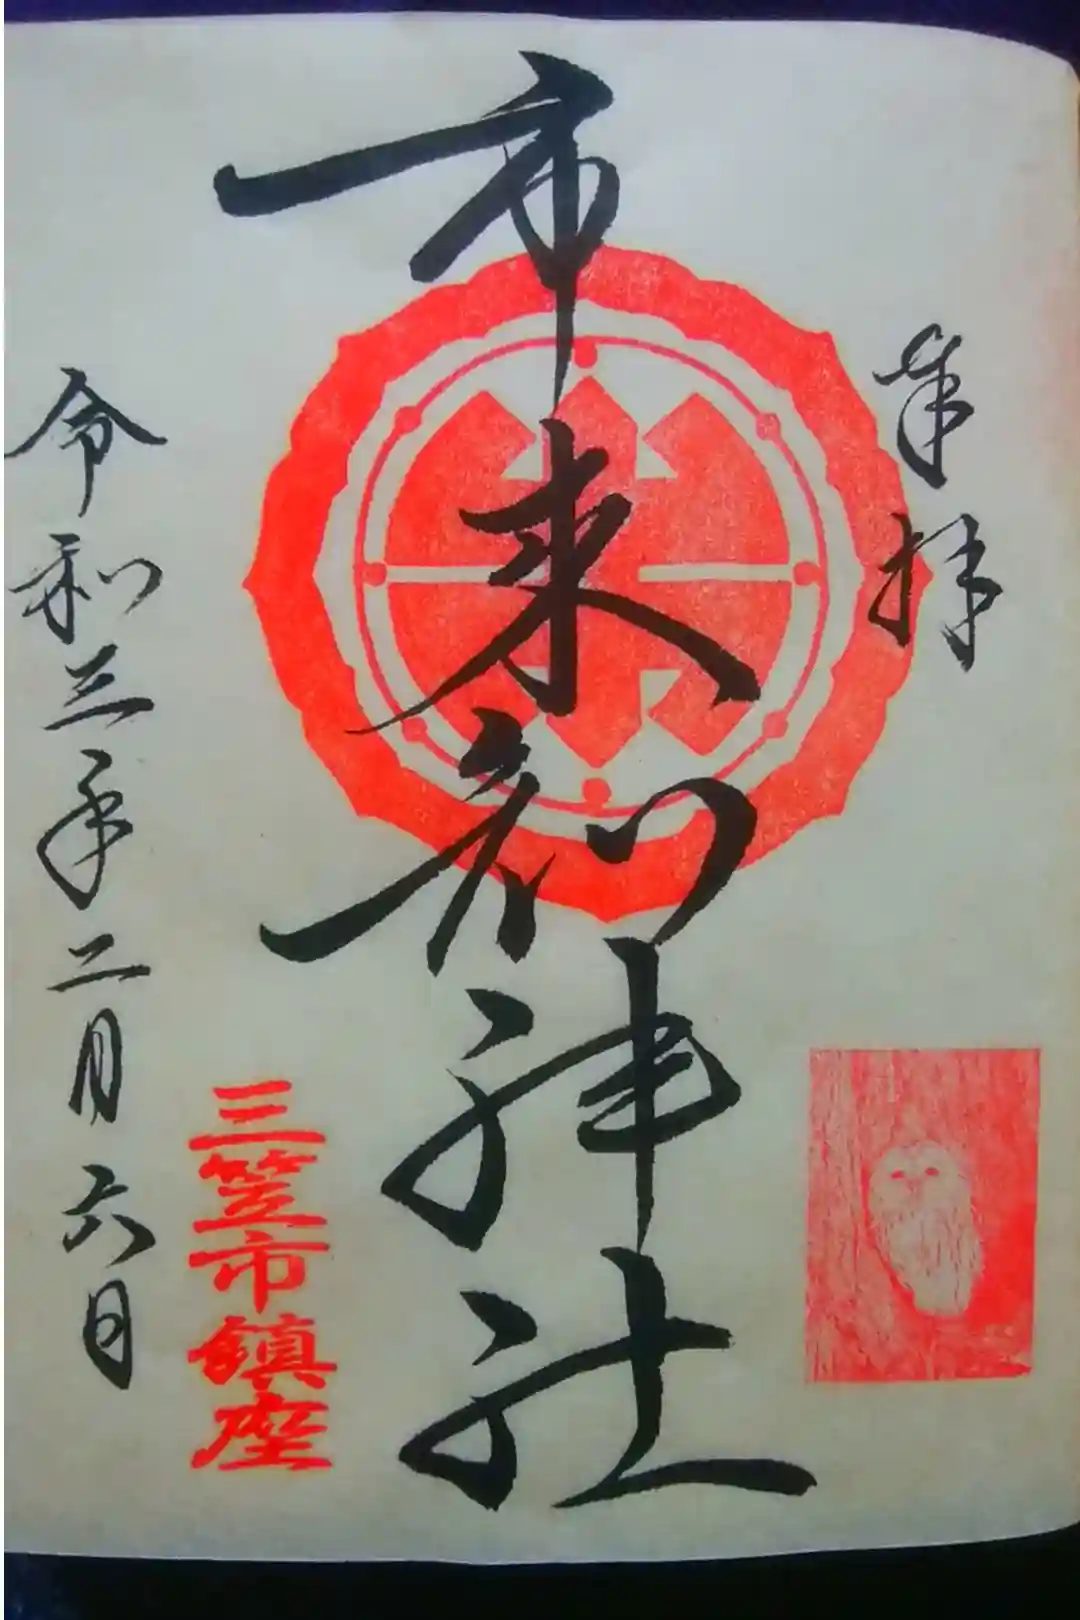 奉拝
市来知神社
三笠市鎮座
令和三年二月六日